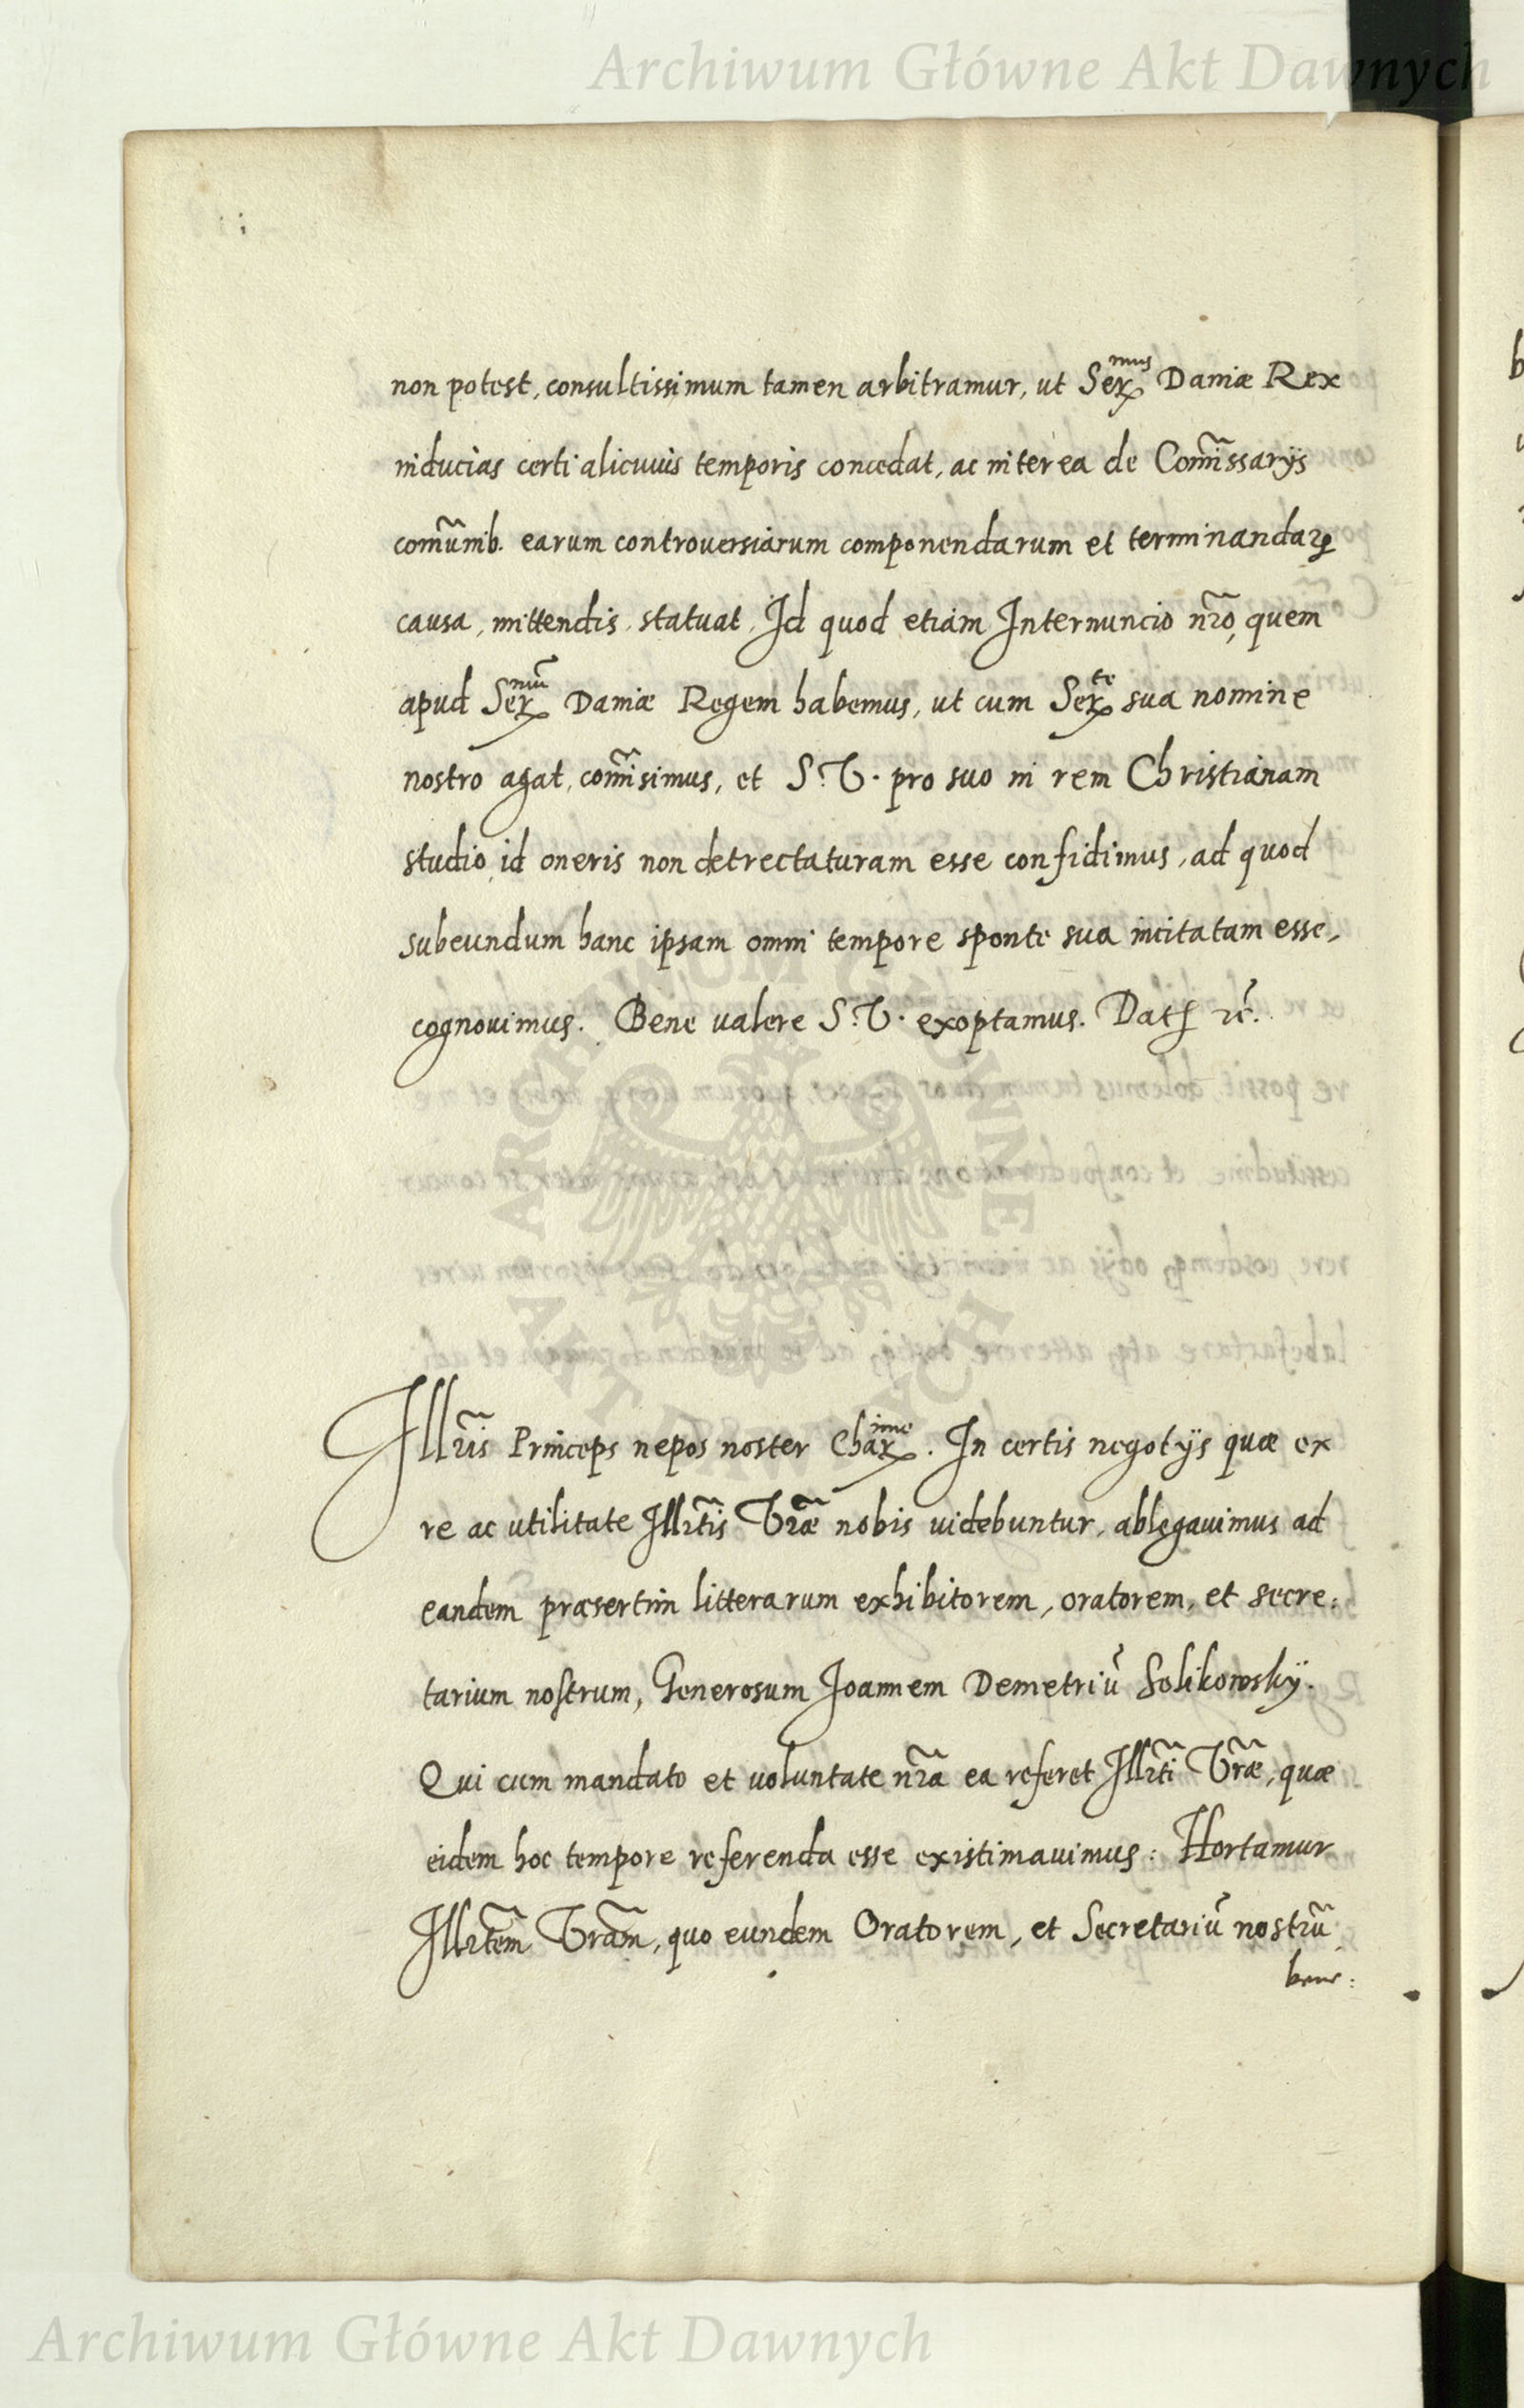 Archiwum Główne Akt Dawnych
non potest, consultissimum tamen arbitramur, ut Ser^mus Daniæ Rex
inducias certi alicuius temporis concedat, ac interea de Com̃issarijs
com̃unib. earum controuersiarum componendarum et terminandaꝝ
causa, mittendis statuat. Id quod etiam Internuncio nr̃o, quem
apud Ser^mũ Daniæ Regem habemus, ut cum Ser^te sua nomine
nostro agat, com̃isimus, et S. V. pro suo in rem Christianam
studio, id oneris non detrectaturam esse confidimus, ad quod
subeundum hanc ipsam omni tempore sponte sua incitatam esse,
cognouimus. Bene valere S. V. exoptamus. Dat. ꝛc̃.
ARCHIWUM GŁÓWNE AKT DAWNYCH
Illr̃is Princeps nepos noster Char^ime. In certis negotijs quæ ex
re ac utilitate Illr̃tis Vr̃æ nobis uidebuntur, ablegauimus ad
eandem præsertim litterarum exhibitorem, oratorem, et secre:
tarium nostrum, Generosum Joannem Demetriũ Solikowskÿ.
Qui cum mandato et uoluntate nr̃a ea referet Illr̃ti Vr̃æ, quæ
eidem hoc tempore referenda esse existimauimus: Hortamur
Illr̃tem Vr̃am, quo eundem Oratorem, et Secretariũ nostrũ
bene:
Archiwum Główne Akt Dawnych